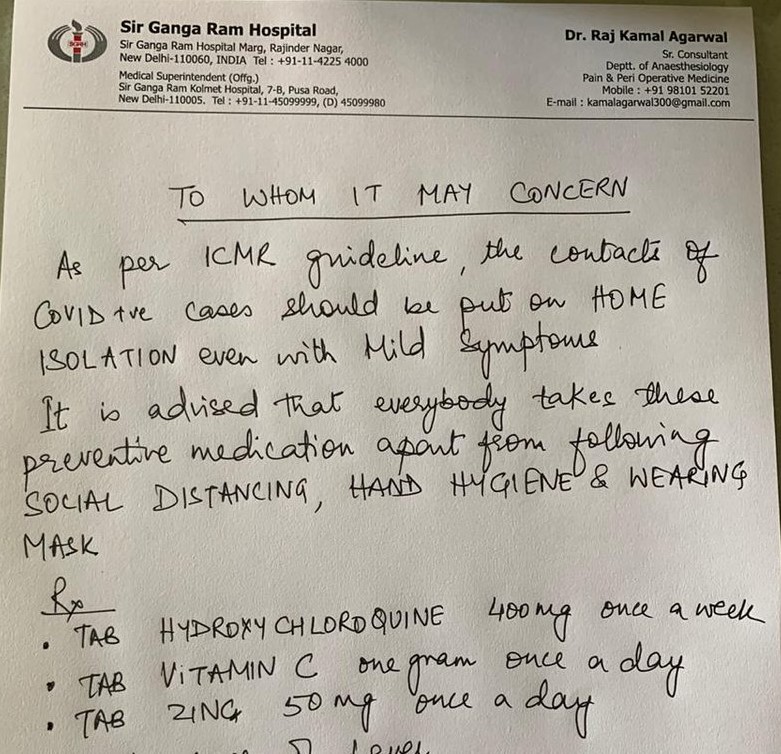 SGRH
Sir Ganga Ram Hospital
Sir Ganga Ram Hospital Marg, Rajinder Nagar,
New Delhi-110060, INDIA Tel : +91-11-4225 4000
Medical Superintendent (Offg.)
Sir Ganga Ram Kolmet Hospital, 7-B, Pusa Road,
New Delhi-110005. Tel : +91-11-45099999, (D) 45099980
Dr. Raj Kamal Agarwal
Sr. Consultant
Deptt. of Anaesthesiology
Pain & Peri Operative Medicine
Mobile : +91 98101 52201
E-mail : kamalagarwal300@gmail.com
TO WHOM IT MAY CONCERN
As per ICMR guideline, the contacts of
COVID +ve cases should be put on HOME
ISOLATION even with Mild Symptoms
It is advised that everybody takes these
preventive medication apart from following
SOCIAL DISTANCING, HAND HYGIENE & WEARING
MASK
Rx
. TAB HYDROXYCHLOROQUINE 400mg once a week
. TAB VITAMIN C one gram once a day
. TAB ZINC 50 mg once a day